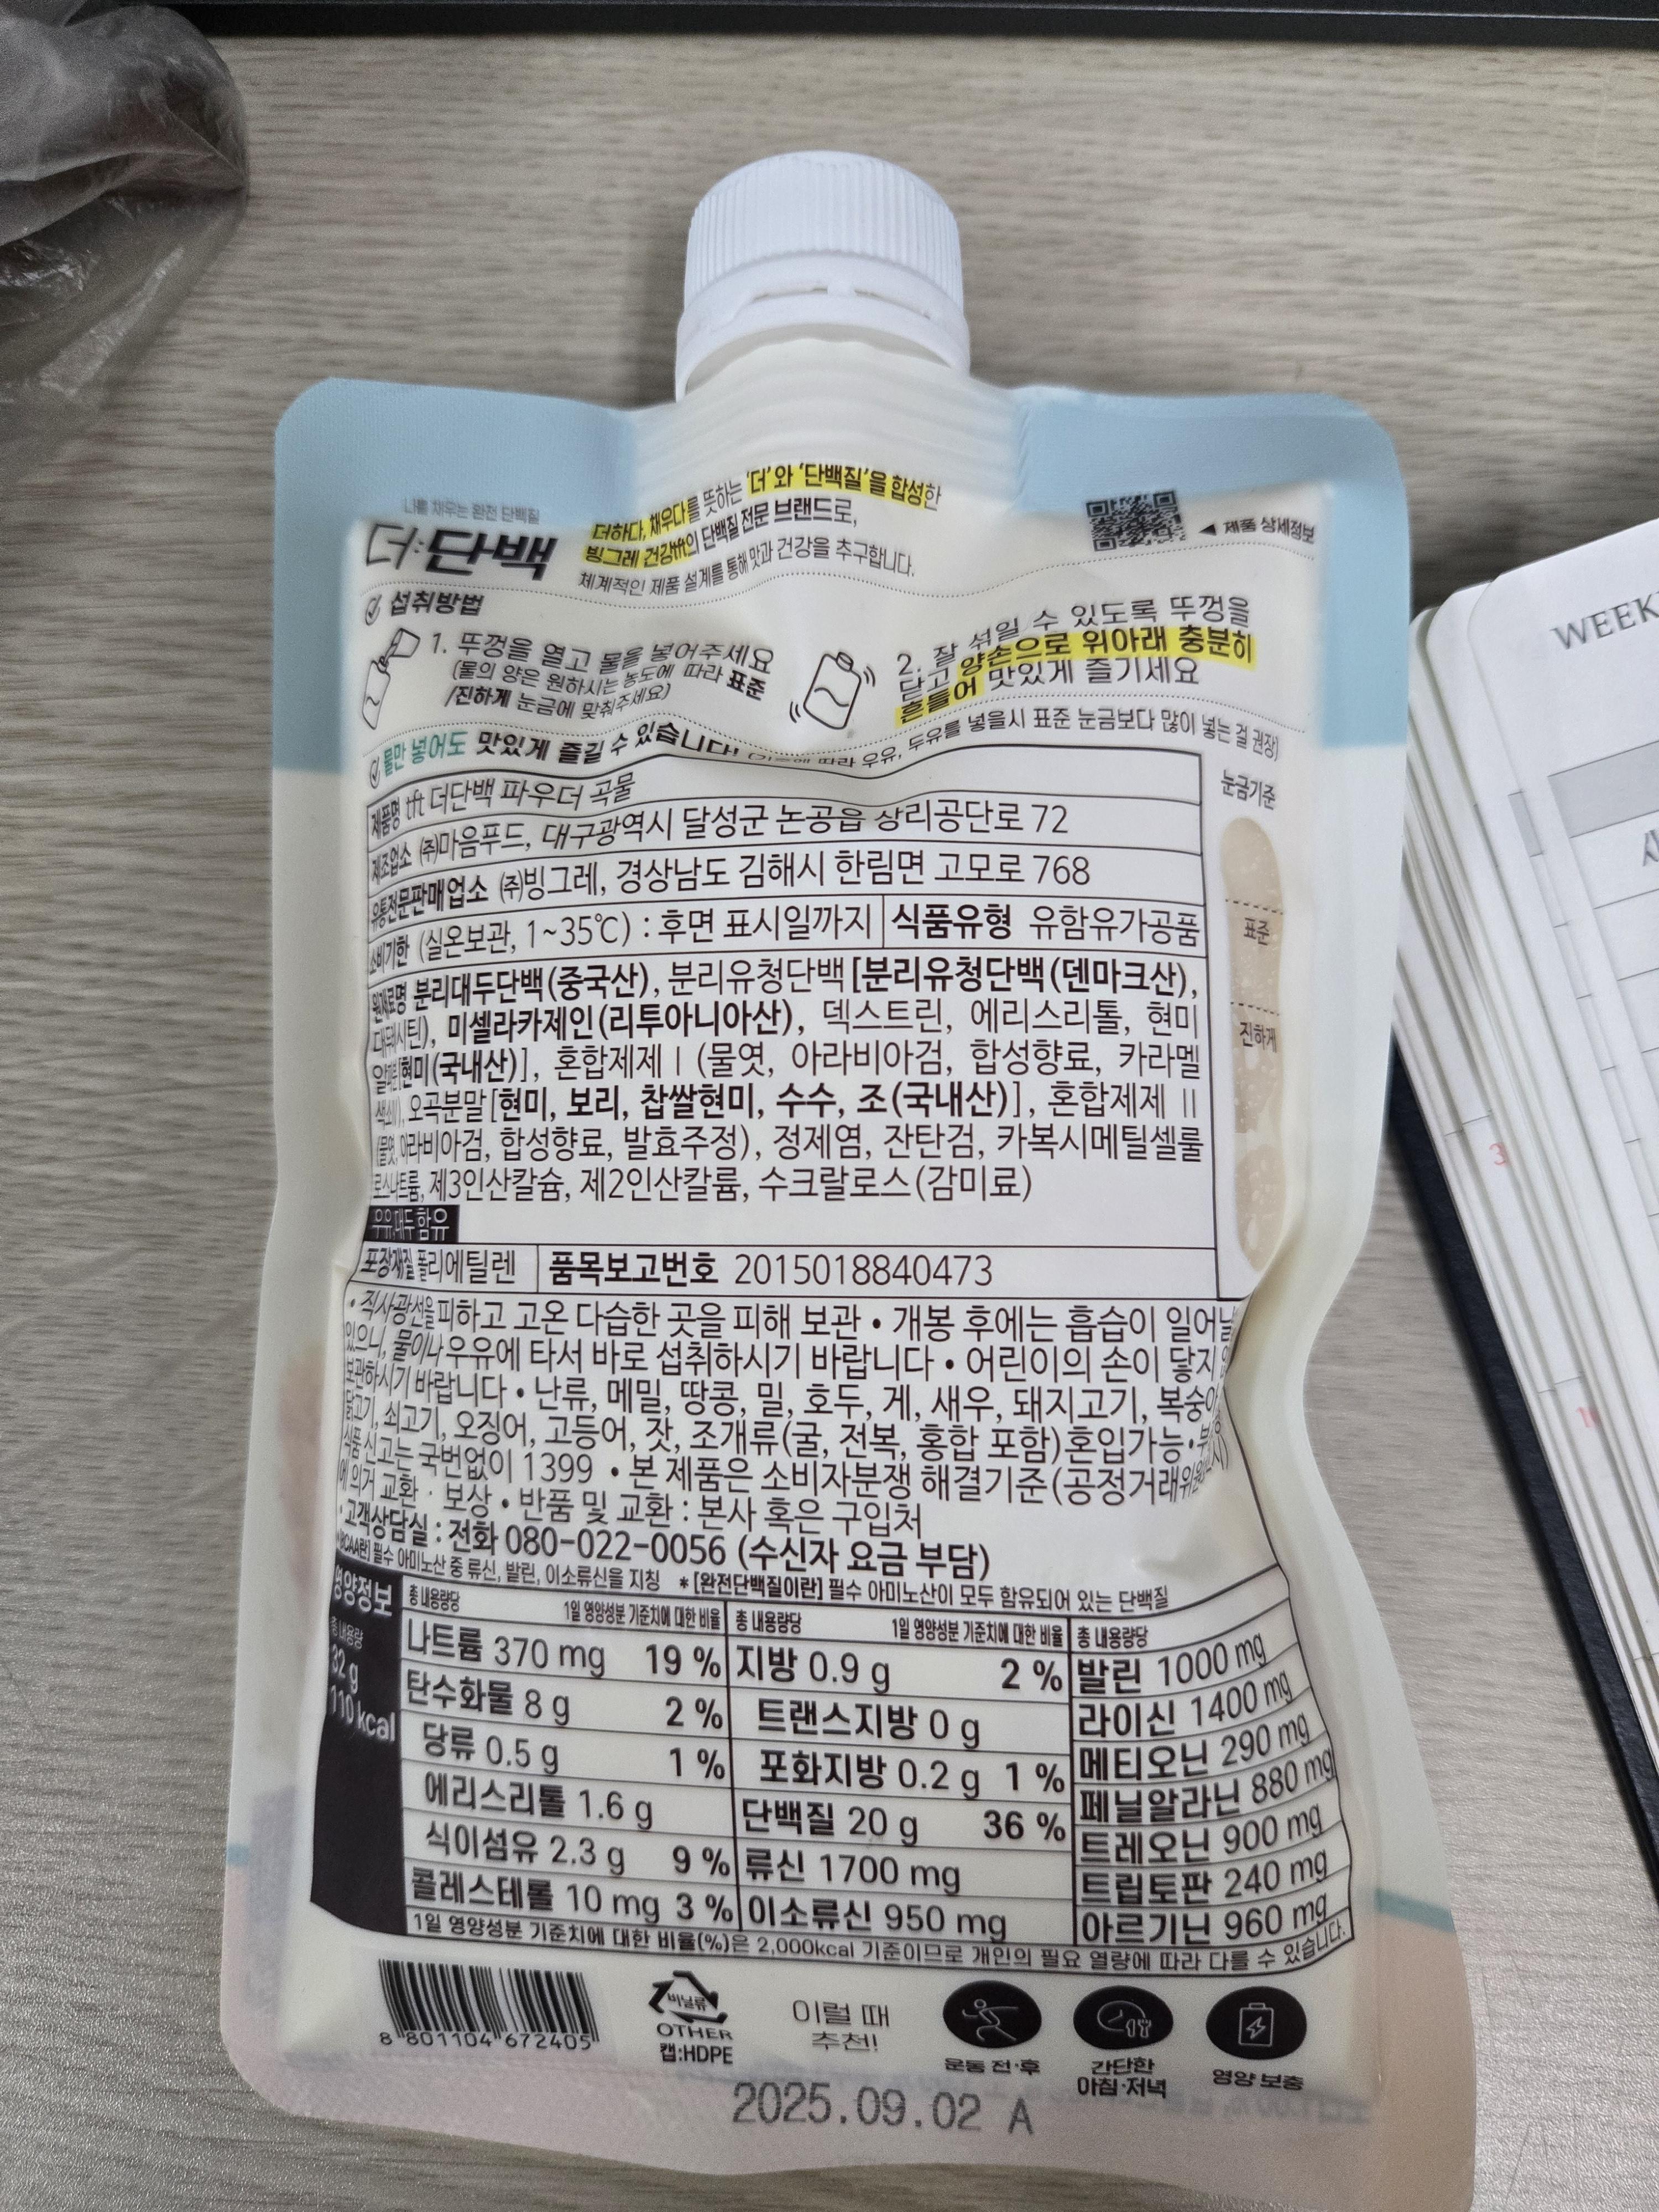 나를 채우는 완전 단백질
더:단백
더하다, 채우다를 뜻하는 '더'와 '단백질'을 합성한
빙그레 건강tft의 단백질 전문 브랜드로,
체계적인 제품 설계를 통해 맛과 건강을 추구합니다.
◀ 제품 상세정보
섭취방법
1. 뚜껑을 열고 물을 넣어주세요
(물의 양은 원하시는 농도에 따라 표준
/진하게 눈금에 맞춰주세요)
2. 잘 섞일 수 있도록 뚜껑을
닫고 양손으로 위아래 충분히
흔들어 맛있게 즐기세요
물만 넣어도 맛있게 즐길 수 있습니다! 따라 우유, 두유를 넣을시 표준 눈금보다 많이 넣는 걸 권장)
눈금기준
표준
진하게
제품명 tft 더단백 파우더 곡물
제조업소 ㈜마음푸드, 대구광역시 달성군 논공읍 상리공단로 72
유통전문판매업소 ㈜빙그레, 경상남도 김해시 한림면 고모로 768
소비기한 (실온보관, 1~35℃) : 후면 표시일까지 식품유형 유함유가공품
원재료명 분리대두단백(중국산), 분리유청단백[분리유청단백(덴마크산),
대두레시틴), 미셀라카제인(리투아니아산), 덱스트린, 에리스리톨, 현미
[현미(국내산)], 혼합제제Ⅰ(물엿, 아라비아검, 합성향료, 카라멜
색소), 오곡분말[현미, 보리, 찹쌀현미, 수수, 조(국내산)], 혼합제제Ⅱ
(물엿, 아라비아검, 합성향료, 발효주정), 정제염, 잔탄검, 카복시메틸셀룰
로스나트륨, 제3인산칼슘, 제2인산칼륨, 수크랄로스(감미료)
우유,대두 함유
포장재질 폴리에틸렌 품목보고번호 2015018840473
• 직사광선을 피하고 고온 다습한 곳을 피해 보관 • 개봉 후에는 흡습이 일어날
있으니, 물이나 우유에 타서 바로 섭취하시기 바랍니다 • 어린이의 손이 닿지
보관하시기 바랍니다 • 난류, 메밀, 땅콩, 밀, 호두, 게, 새우, 돼지고기, 복숭아
닭고기, 쇠고기, 오징어, 고등어, 잣, 조개류(굴, 전복, 홍합 포함)혼입가능 •
식품 신고는 국번없이 1399 • 본 제품은 소비자분쟁 해결기준(공정거래위원
에 의거 교환 · 보상 • 반품 및 교환 : 본사 혹은 구입처
• 고객상담실 : 전화 080-022-0056 (수신자 요금 부담)
*[BCAA란] 필수 아미노산 중 류신, 발린, 이소류신을 지칭 *[완전단백질이란] 필수 아미노산이 모두 함유되어 있는 단백질
영양정보
총 내용량
32 g
110 kcal
총 내용량당 1일 영양성분 기준치에 대한 비율
나트륨 370 mg 19 %
탄수화물 8 g 2 %
당류 0.5 g 1 %
에리스리톨 1.6 g
식이섬유 2.3 g 9 %
콜레스테롤 10 mg 3 %
총 내용량당 1일 영양성분 기준치에 대한 비율
지방 0.9 g 2 %
트랜스지방 0 g
포화지방 0.2 g 1 %
단백질 20 g 36 %
류신 1700 mg
이소류신 950 mg
총 내용량당
발린 1000 mg
라이신 1400 mg
메티오닌 290 mg
페닐알라닌 880 mg
트레오닌 900 mg
트립토판 240 mg
아르기닌 960 mg
1일 영양성분 기준치에 대한 비율(%)은 2,000kcal 기준이므로 개인의 필요 열량에 따라 다를 수 있습니다.
8 801104 672405
비닐류
OTHER
캡:HDPE
이럴 때
추천!
운동 전·후
간단한
아침·저녁
영양 보충
2025.09.02 A
WEEK
3